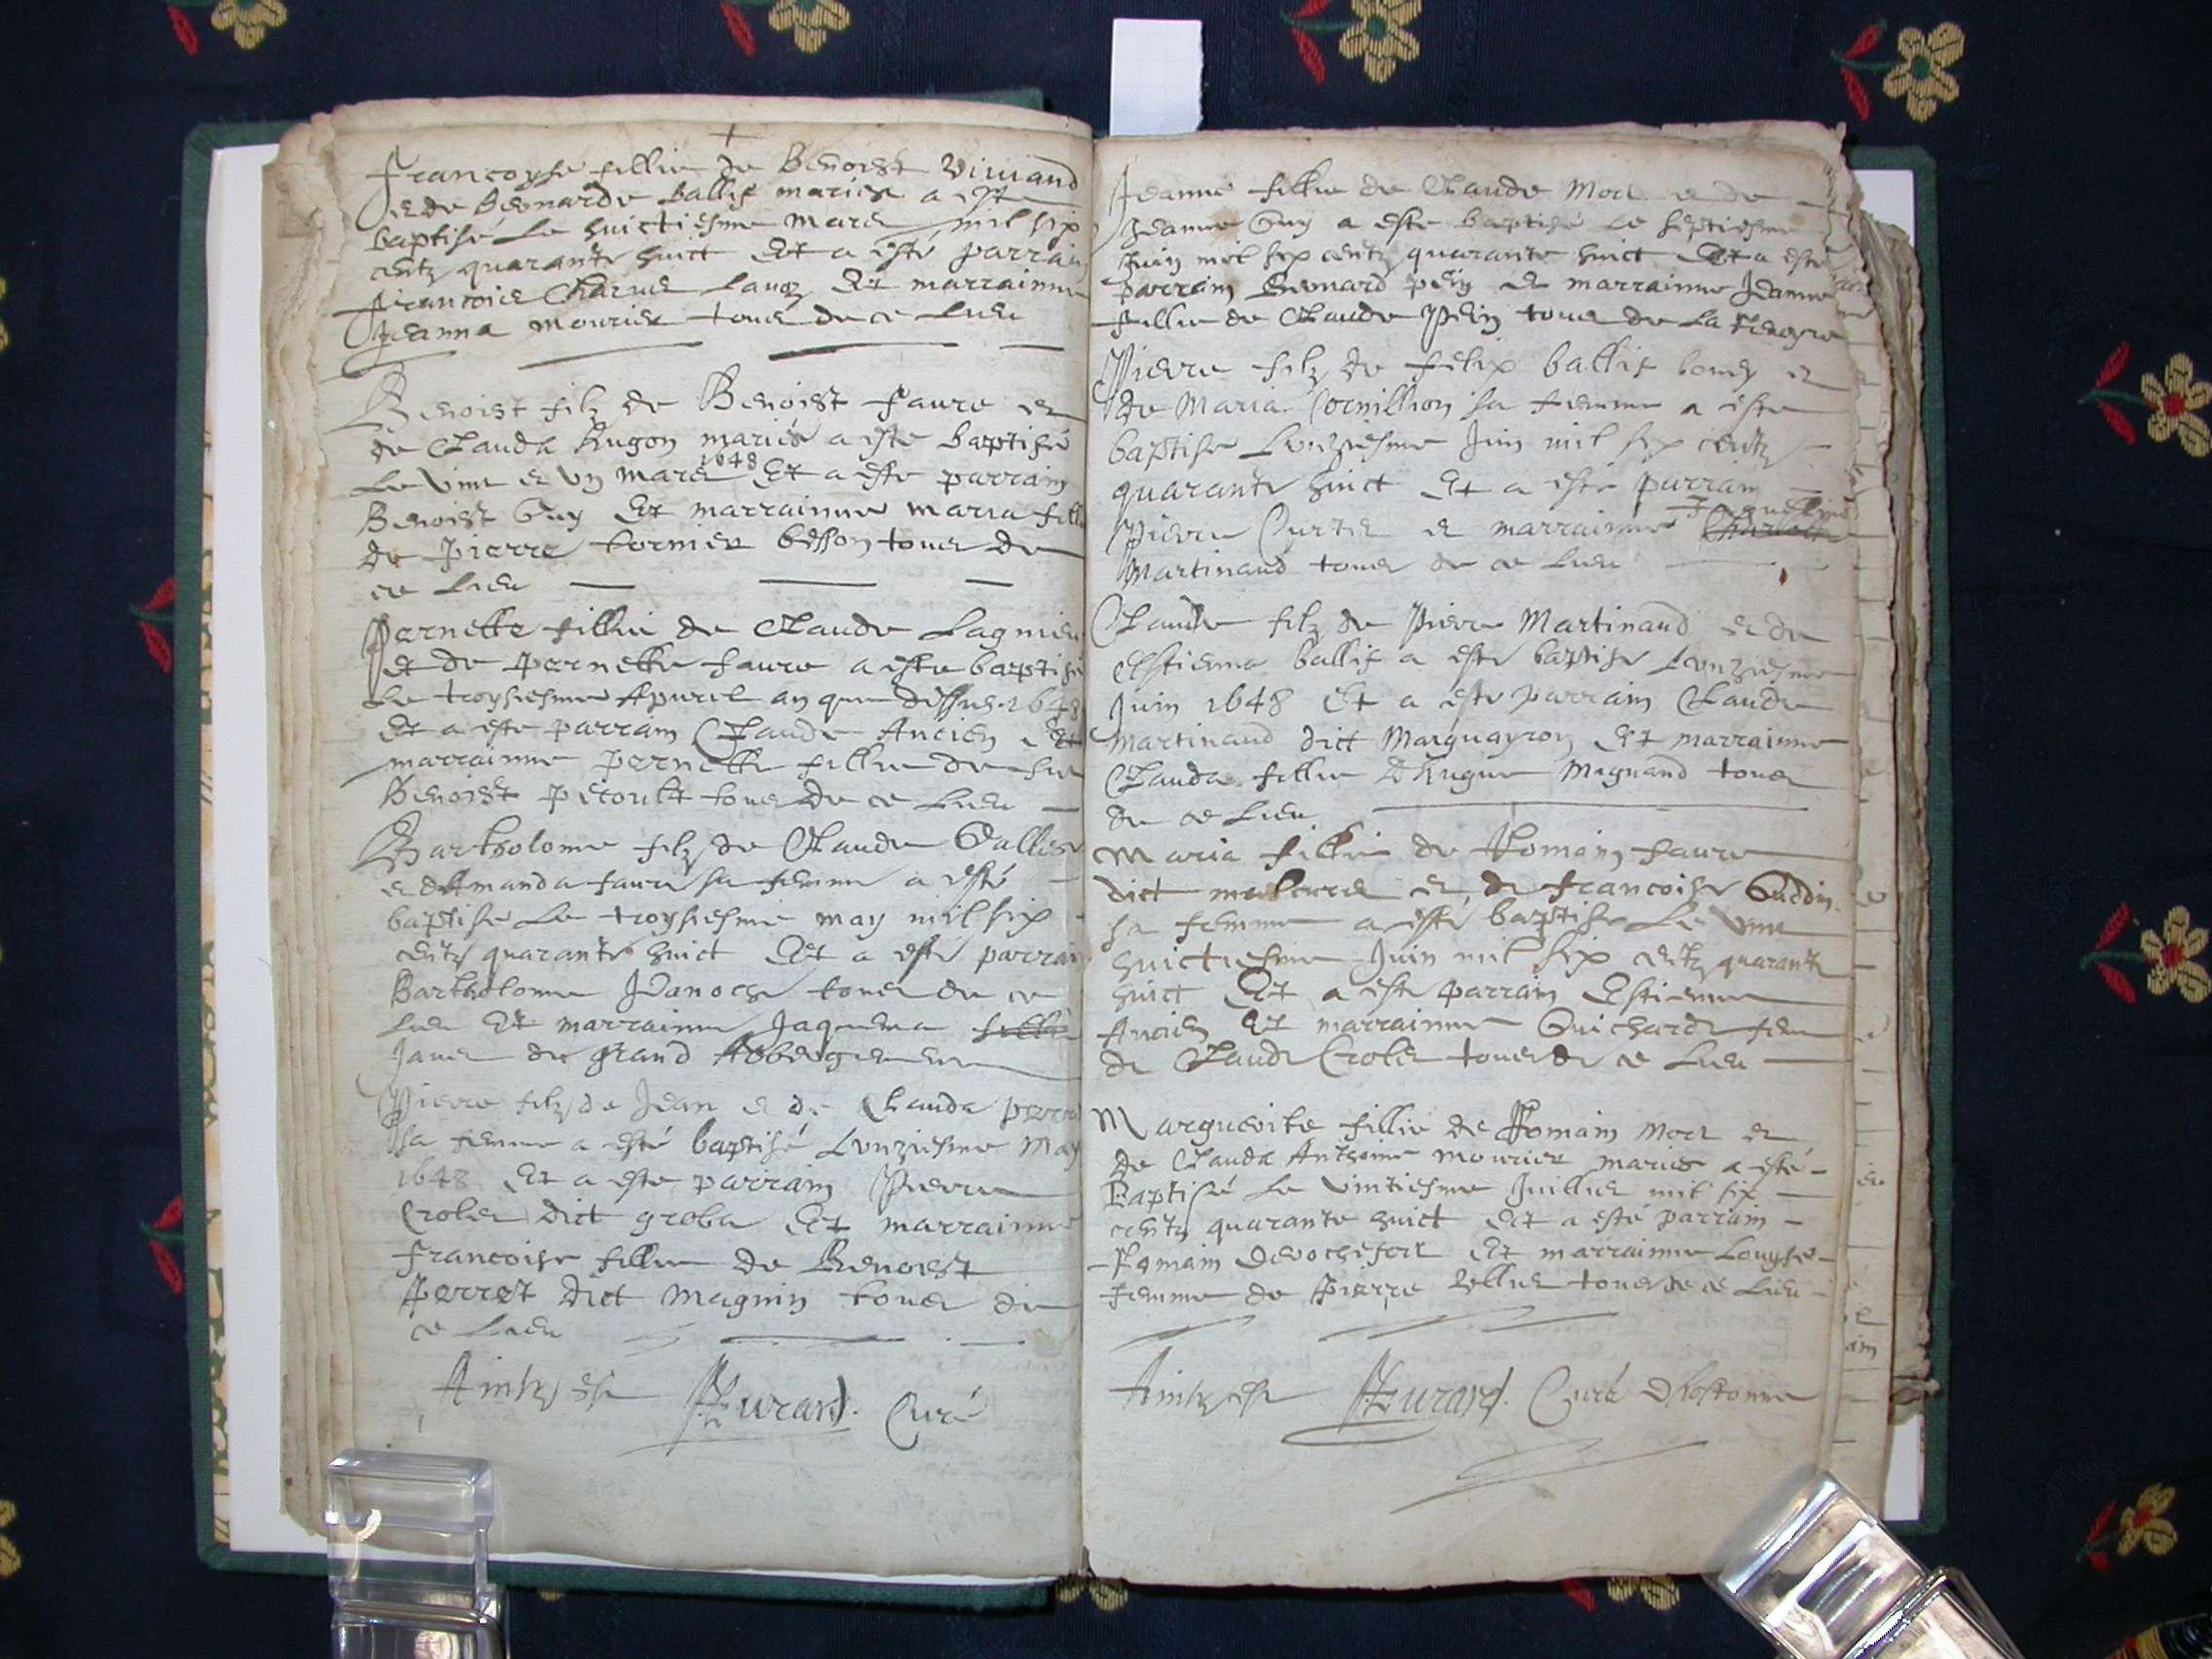 Francoyse fillie de Benoist Viuiand
et de Bernarde ballif maries a esté
baptisé le huictiesme mars mil six
centz quarante huict Et a esté parrain
Francois Charues Et marrainne
Jeanna mourier tous de ce lieu
Benoist filz de Benoist faure et
de Clauda Hugon mariés a esté baptisé
le vint et vn mars 1648 Et a este parrain
Benoist Guy Et marrainne maria fillie
de Pierre tornier besson tous de
ce lieu
Pernette fillie de Claude Lagnieu
et de pernette faure a este baptisé
le troysiesme Apuril an que dessus 1648
Et a este parrain Claude Ancien Et
marrainne pernette fillie de feu
Benoist petoulx tous de ce lieu
Bartholome filz de Claude Gallies
et d'Amanda faure sa femme a esté
baptise le troysiesme may mil six
centz quarante huict Et a esté parrain
Bartholome Janoch tous de ce
lieu Et marrainne Jaquema fillie
Janes du grand Abbergement
Pierre filz de Jean et de Clauda perret
sa femme a esté baptisé l'vnziesme May
1648 Et a este parrain Pierre
Croles dict groba Et marrainne
francoise fillie de Benoist
Perret dict magnin tous de
ce lieu
Ainsy est Purard. Curé
Jeanne fillie de Claude Morl et de
Jeanne Guy a este baptisé le septiesme
Juin mil six centz quarante huict Et a esté
parrain Bernard pein et marrainne Jeanne
fillie de Claude Pein tous de la
Pierre filz de felix ballif bouey et
de Maria Cornillion sa femme a este
baptise l'vnziesme Juin mil six centz
quarante huict Et a esté parrain
Pierre Curtis et marrainne Charlotte Jaquelline
Martinand tous de ce lieu
Claude filz de Pierre Martinand et de
Estienna ballif a este baptise l'vnziesme
Juin 1648 Et a este parrain Claude
martinand dict Marguayron Et marrainne
Clauda fillie d'Hugue Mignand tous
de ce lieu
Maria fillie de Romain faure
dict et de francoise Guddin
sa femme a esté baptise le vint
huictiesme Juin mil six centz quarante
huict Et a este parrain Estienne
Ancien Et marrainne Guicharde fem
de Claude Croles tous de ce lieu
Marguerite fillie de Romain Morl et
de Clauda Anthoine mourier maries a esté
Baptisé le vintiesme Juillet mil six
centz quarante huict Et a esté parrain
Romain Derochefort Et marrainne Louyse
femme de Pierre Vellies tous de ce lieu
Ainsy est Purard. Curé d'hostonne